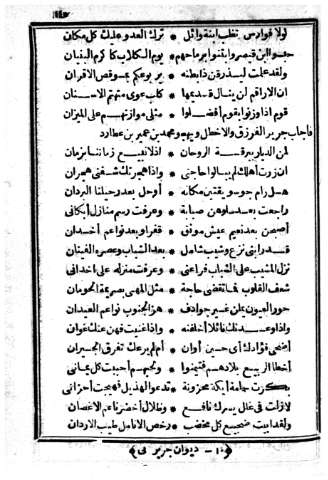 لولا فوارس تغلب ابنة وائل * ترك العدو عليك كل مكان
حبسوا ابن قيصر وابتنوا برماحهم * يوم الكلاب كأكرم البنيان
ولقد علمت ليذرقن ذا بطنه * يربوعكم لموقص الاقران
ان الاراقم لن ينال قديمها * كلب عوى متهتم الاسنان
قوم اذا وزنوا بقوم أفضلوا * مثلى موازنهم على الميزان
فاجاب جرير الفرزدق والاخطل ويهجو محمد بن عمير بن عطارد
لمن الديار ببرقة الروحان * اذ لا نبيع زماننا بزمان
ان زرت أهلك لم يبالوا حاجتي * واذا هجرتك شفني هجران
هل رام جو سويقتين مكانه * أو حل بعد رحيلنا البردان
راجعت بعد سلوهن صبابة * وعرفت رسم منازل أبكاني
أصبحن بعد نعيم عيش مونق * قفرا وبعد نواعم أخدان
قد رابني نزع وشيب شامل * بعد الشباب وعصره الفينان
نزل المشيب على الشباب فراعني * وعرفت منزله على أخداني
شعف القلوب فما تقضى حاجة * مثل المهى بصريمة الحومان
حور العيون يمسن غير جوادف * هز الجنوب نواعم العيدان
واذا وعدنك نائلا أخلفنه * واذا غنيت فهن عنك غوان
أضحى فؤادك أي حين أوان * أم لم يرعك تفرق الجيران
أخطأ الربيع بلادهم فتيمنوا * ولحبهم أحببت كل يماني
بكرت حمامة أيكة محزونة * تدعو الهديل فهيجت أحزاني
لا زلت في غلل يسرك ناقع * وظلال أخضر ناعم الاغصان
ولقد أبيت ضجيع كل مخضب * رخص الانامل طيب الاردان
ديوان جرير